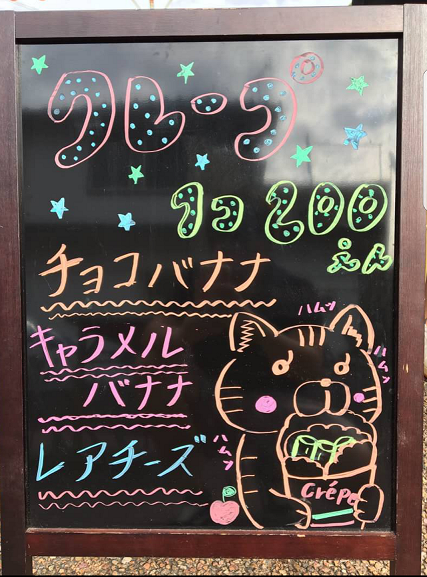 クレープ
1コ 200
えん
チョコバナナ
キャラメル
バナナ
レアチーズ
ハムッ
ハムッ
ハムッ
Crépe